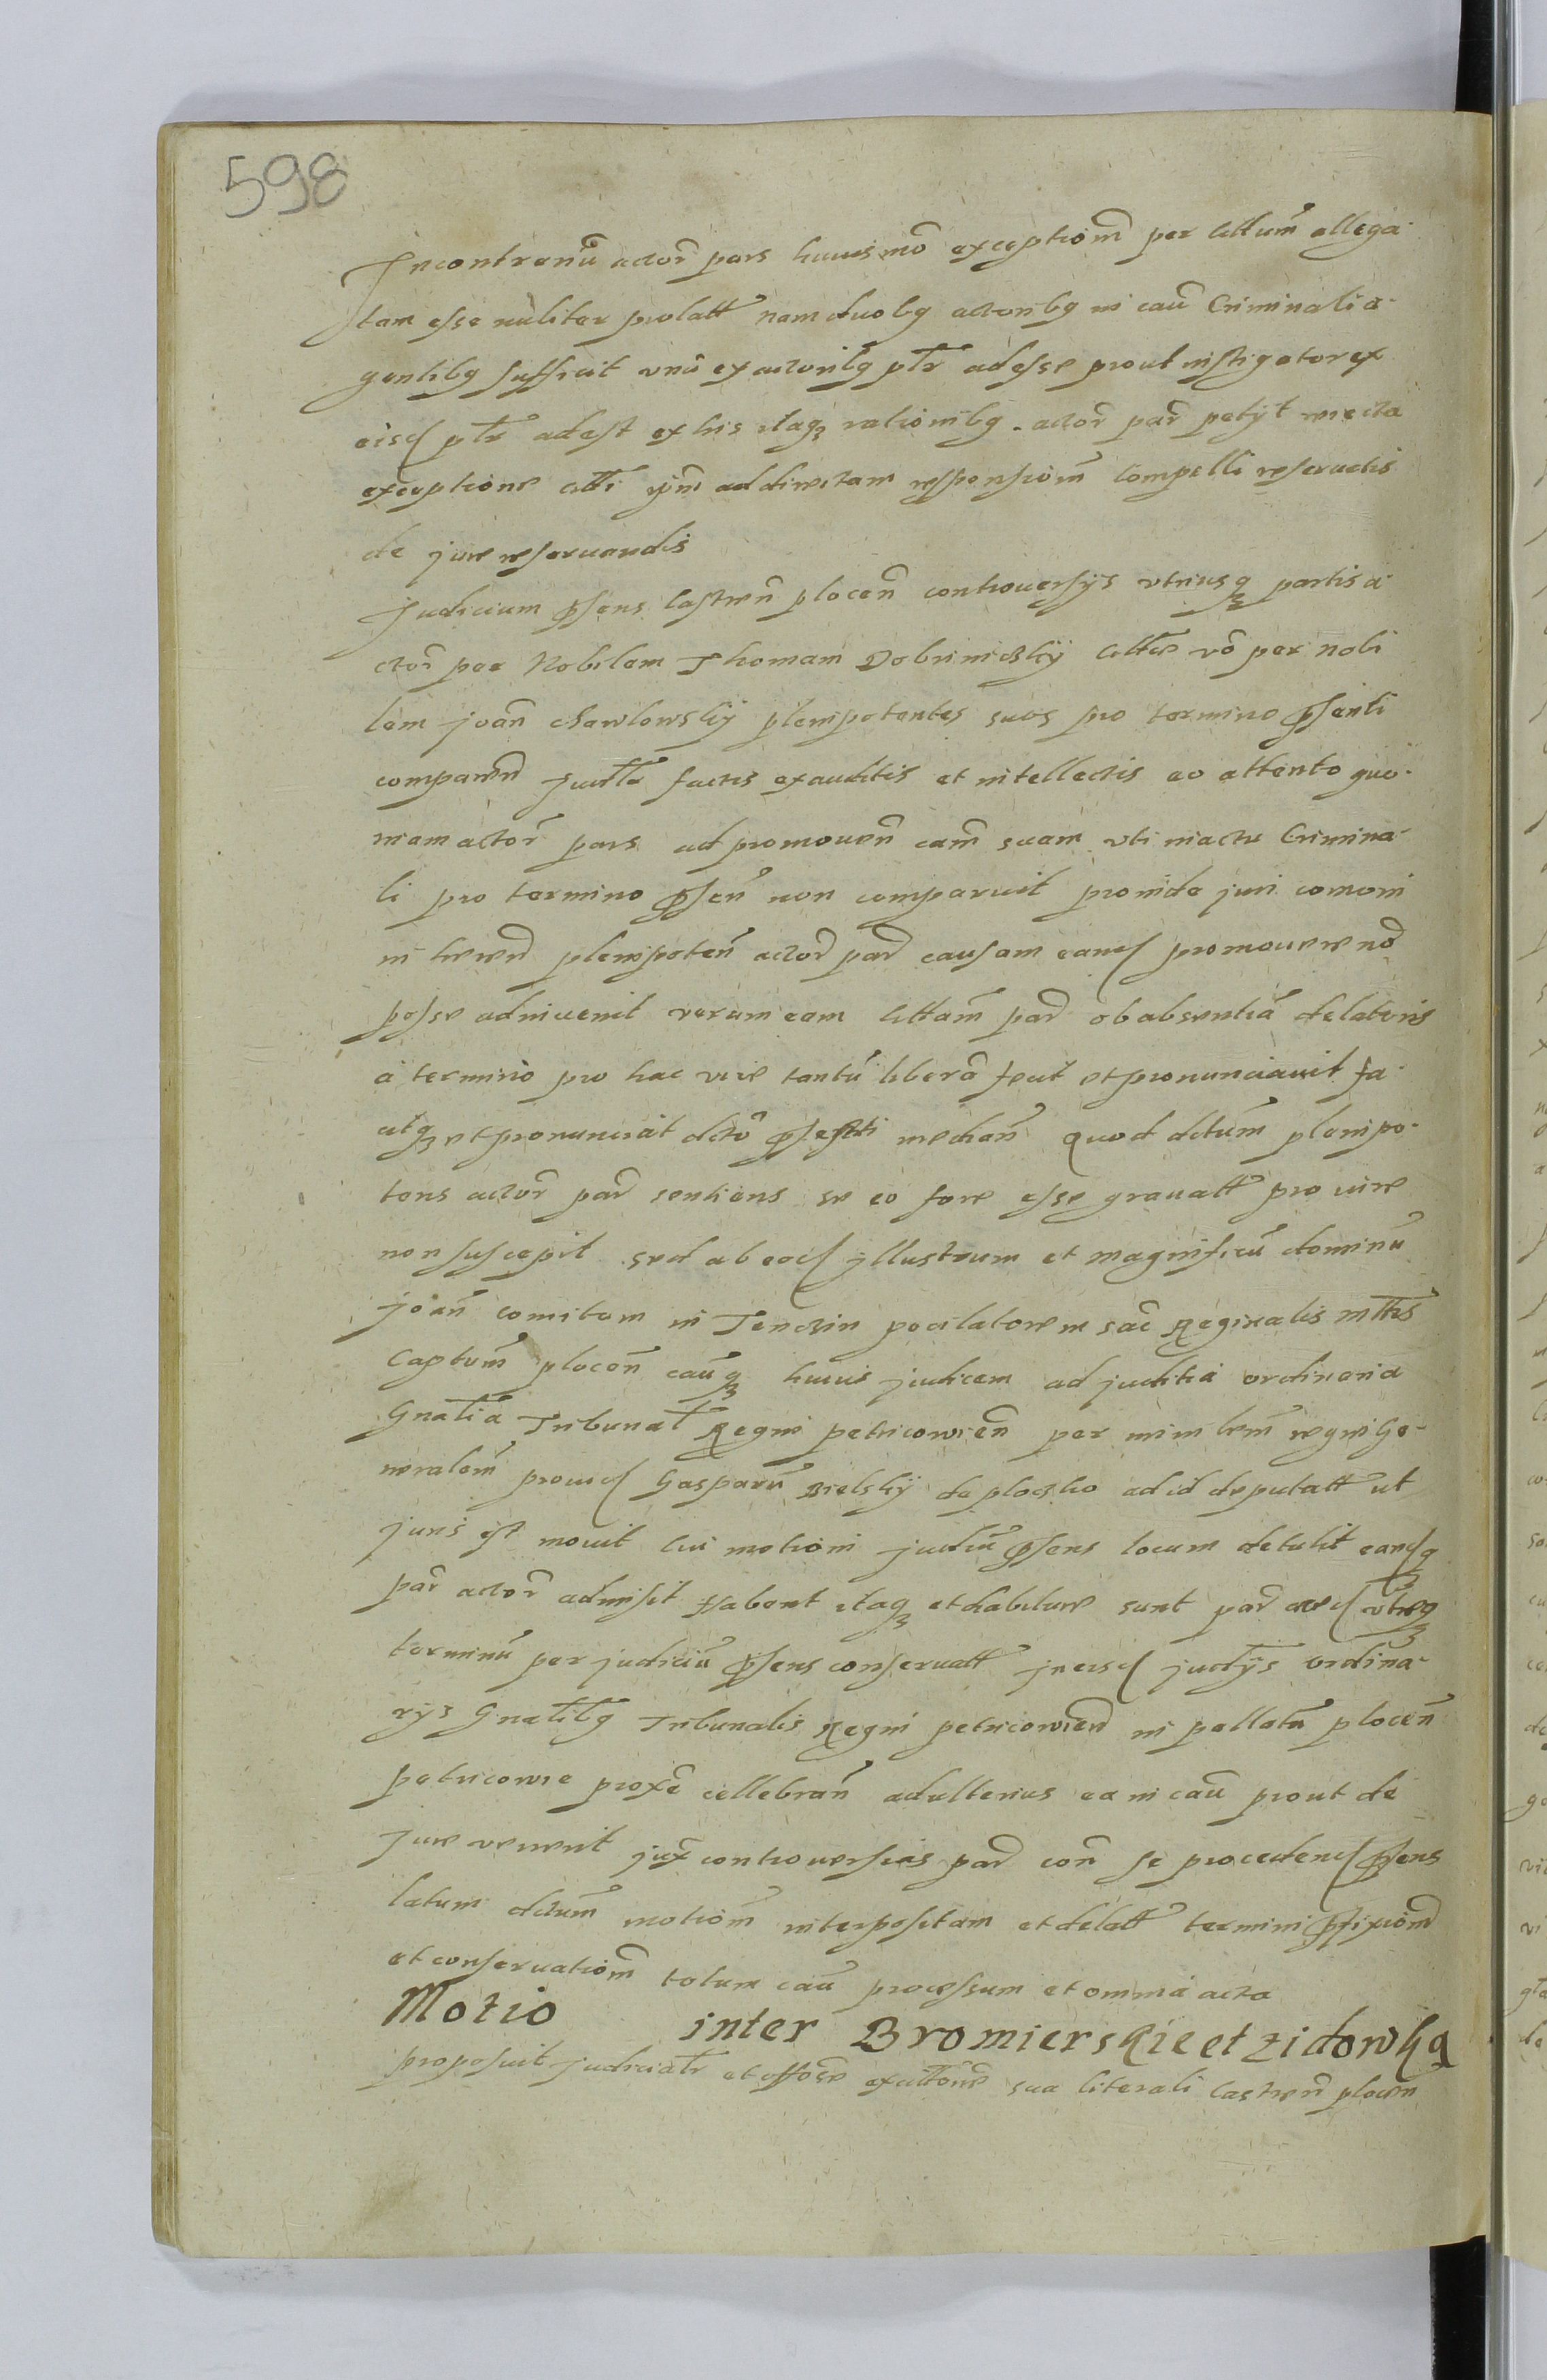 598
Incontrariũ actor̃ pars huiusmõ exceptiom̃ per Cittum̃ allega-
tam esse nuliter prolatt̃ nam duobq actoribq in caũ Criminali a-
gentibq sufficit vnũ ex actoribq ptr̃ adesse prout instigator ex
eisd ptr̃ adest ex his itaqz rationibq actor̃ par̃ petyt reiecta
exceptione citti ad directam responsiom̃ compelli reservatis
de jure reservandis
Judicium psens Castren̄ plocen̄ controversijs vtriusqz partis a-
ctor̃ per Nobilem Thomam Dobrinickij Citte võ per nobi
lem joan̄ chawlowskij plenipotentes suos pro termino psenti
comparen̄ factis exauditis et intellectis eo attento quo-
niam actor̃ pars ad promouen̄ cam̃ suam vti in actu Crimina-
li pro termino psen̄ non comparuit proinde juri comoni
in heren̄ plenipoten̄ actor̃ par̃ causam eand promouere nõ
posse adinuenit verum eam Cittam̃ par̃ ob absentiã delatoris
à termino pro hac vice tantũ liberã fecit et pronunciauit fa-
citqz et pronunciat dictõ median̄ quod dictum̃ plenipo-
tens actor̃ par̃ sentiens se eo fore esse gravatt̃ pro vire
non suscepit sed ab eod jllustrum et magnificũ dominũ
joan̄ comitem in Tenczin pocilatorem sac̃ Reginalis mttis
Captum̃ plocen̄ cauqz huius judicem ad juditia ordinaria
Gnalia Tribunal̃ Regni petricowien̄ per ministrum̃ regni Ge-
neralem̃ prouid Gasparũ Bielskij de ploczko ad id deputatt̃ ut
juris est mouit Cui motioni judiciũ psens locum detulit eandqz
par̃ actor̃ admisit Habent itaqz et habiture sunt par̃ vtreqz
terminũ per judiciũ psens conseruatt̃ jn eisd judijs ordina-
rijs Gnalibq Tribunalis Regni petricowien̄ in pallatũ plocen̄
petricowie proxẽ cellebran̄ ad ulterius ea in caũ prout de
jure venerit jux̃ controuersias par̃ cor̃ se procedend psens
latum dictum̃ motiom̃ interpositam et delatt̃ termini pfixiom̃
et conseruatiom̃ totum caũ processum et omnia acta
Motio inter Bromierskie et zidowską
proposuit judicialr̃ et sua literali Castren̄ plocen